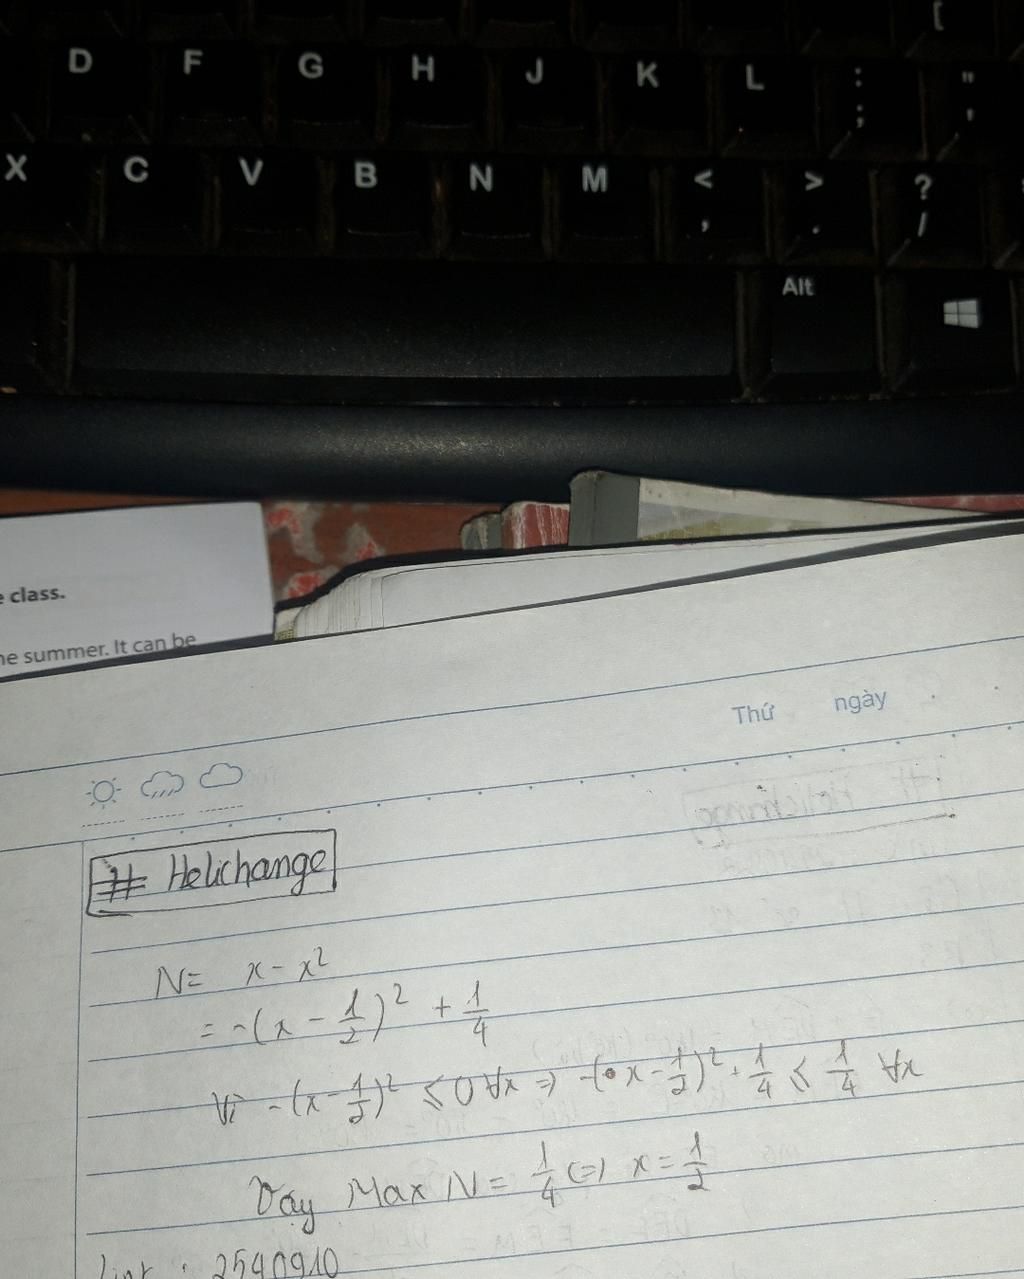 [
D F G H J K L : ; " '
X C V B N M < , > . ? /
Alt
e class.
he summer. It can be
Thứ ngày
# Helichange
N = x - x²
= -(x - 1/2)² + 1/4
Vì -(x - 1/2)² ≤ 0 ∀x => -(x - 1/2)² + 1/4 ≤ 1/4 ∀x
Vậy Max N = 1/4 <=> x = 1/2
: 2540910